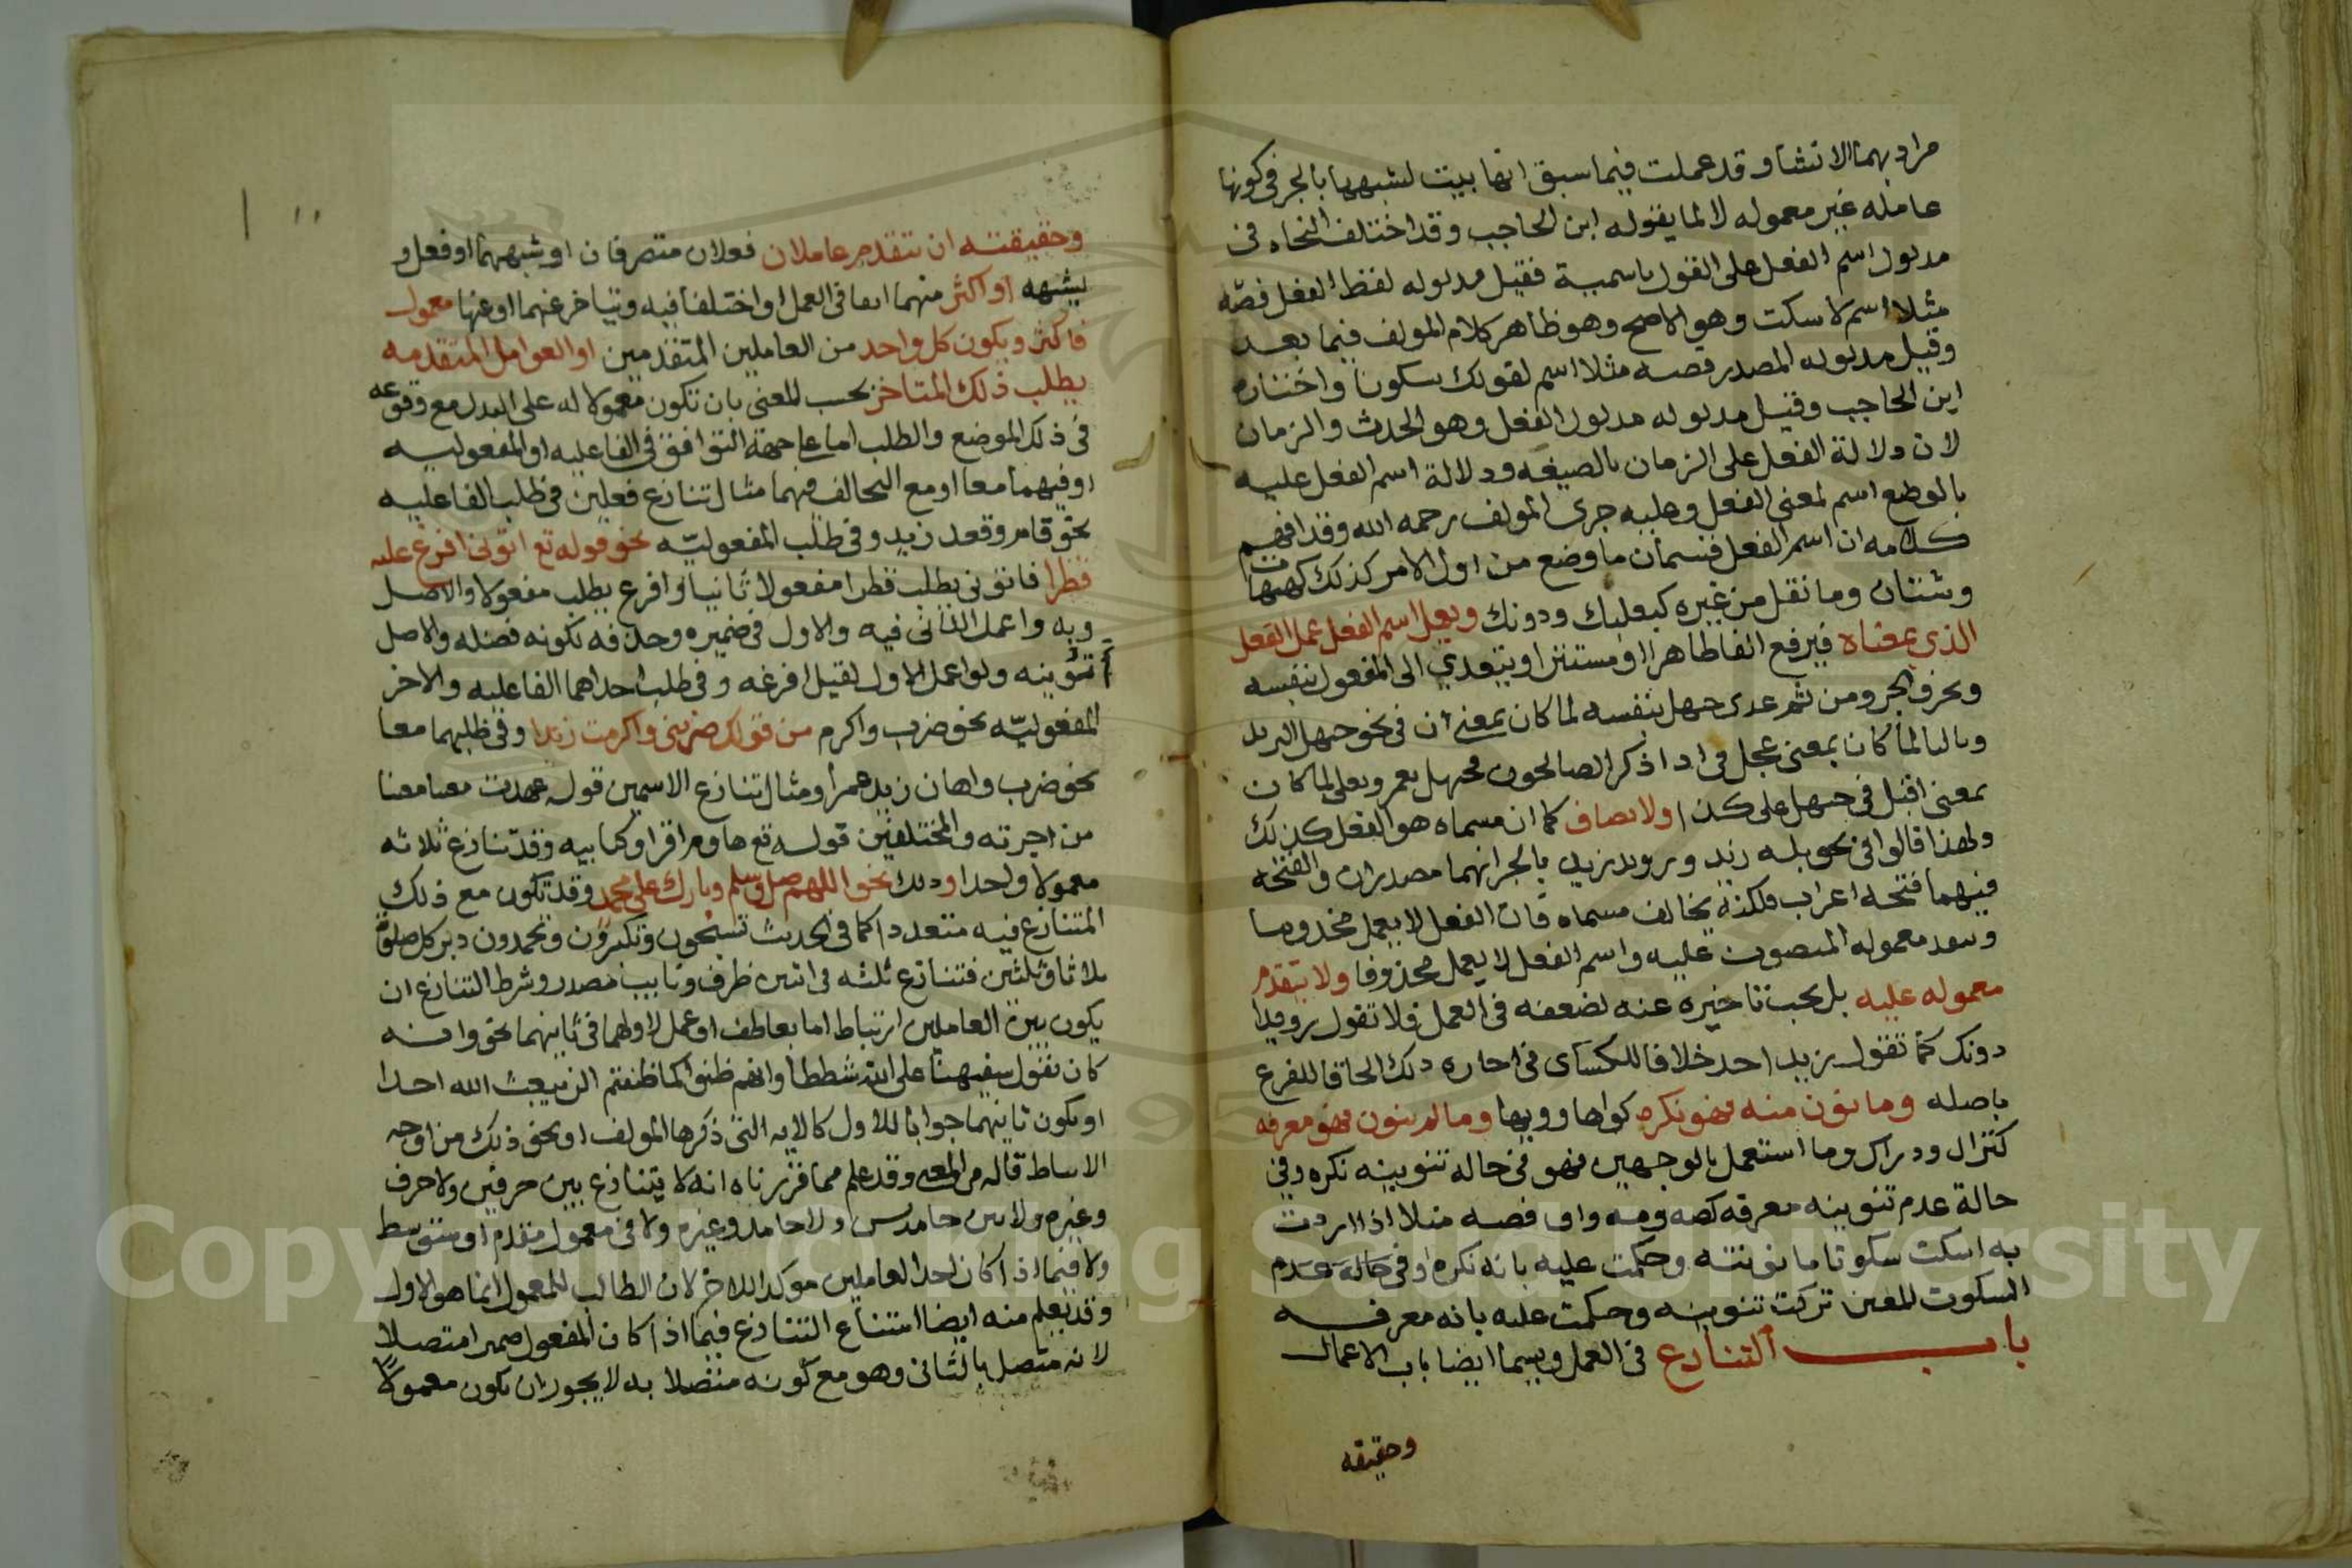 مراد بهما الانشا وقد عملت فيما سبق انها بنيت لشبهها بالحرف في كونها
عامله غير معموله لا لما يقوله ابن الحاجب وقد اختلف النحاه في
مدلول اسم الفعل على القول باسمية فقيل مدلوله لفظ الفعل فصه
مثلا اسم لاسكت وهو الاصح وهو ظاهر كلام المولف فيما بعد
وقيل مدلوله المصدر فصه مثلا اسم لقولك سكوتا واختاره
ابن الحاجب وقيل مدلوله مدلول الفعل وهو الحدث والزمان
لان دلالة الفعل على الزمان بالصيغه ودلالة اسم الفعل عليه
بالوضع اسم لمعنى الفعل وعليه جرى المولف رحمه الله وقد افهم
كلامه ان اسم الفعل قسمان ما وضع من اول الامر كذلك كهيهات
وشتان وما نقل من غيره كعليك ودونك ويعمل اسم الفعل عمل الفعل
الذي بمعناه فيرفع الفاعل ظاهرا او مستترا ويتعدي الى المفعول بنفسه
وبحرف الجر ومن ثم عدى حيهل بنفسه لما كان بمعنى ات في نحو حيهل الثريد
وبالبا لما كان بمعنى عجل في اذا ذكر الصالحون فحيهل بعمر وبعلى لما كان
بمعنى اقبل في حيهل على كذا ولا يضاف كما ان مسماه هو الفعل كذلك
ولهذا قالوا في نحو بله زيد ورويد زيد بالجر انهما مصدران والفتحه
فيهما فتحه اعراب ولكنه يخالف مسماه فان الفعل لا يعمل محذوفا
معموله المنصوب عليه واسم الفعل لا يعمل محذوفا ولا يتقدم
معموله عليه بل يجب تاخيره عنه لضعفه في العمل فلا تقول رويدا
دونك كما تقول زيدا خلافا للكساى في اجازه ذلك الحاقا للفرع
باصله وما نون منه فهو نكره كواها وويها وما لم ينون فهو معرفه
كنزال ودراك وما استعمل بالوجهين فهو في حاله تنوينه نكره وفي
حالة عدم تنوينه معرفه كصه ومه واف فصه مثلا اذا اردت
به اسكت سكوتا ما نونته وحكمت عليه بانه نكره وفي حاله عدم
السكوت المعين تركت تنوينه وحكمت عليه بانه معرفه
باب التنازع في العمل ويسما ايضا باب الاعمال
وحقيقه
وحقيقته ان يتقدم عاملان فعلان متصرفان او شبههما او فعل و
يشبهه او اكثر منهما اتفقا في العمل او اختلفا فيه ويتاخر عنهما او عنها معمول
فاكثر ويكون كل واحد من العاملين المتقدمين او العوامل المتقدمه
يطلب ذلك المتاخر بحسب المعنى بان تكون معمولا له على البدل مع وقوعه
في ذلك الموضع والطلب اما على جهة التوافق في الفاعليه او المفعوليه
او فيهما معا او مع التخالف فيهما مثال تنازع فعلين في طلب الفاعليه
نحو قام وقعد زيد وفي طلب المفعوليه نحو قوله تع اتوني افرغ عليه
قطرا فاتوني يطلب قطرا مفعولا ثانيا وافرغ يطلب مفعولا والاصل
وبه واعمل الثاني فيه والاول في ضميره وحذفه لكونه فضله والاصل
اتونيه ولو اعمل الاول لقيل افرغه وفي طلب احداهما الفاعليه والاخر
المفعوليه نحو ضرب واكرم من قولك ضربني واكرمت زيدا وفي طلبهما معا
نحو ضرب واهان زيد عمرا ومثال تنازع الاسمين قوله عهدت مغيثا مغنيا
من اجرته والمختلفين قوله تع هاوم اقراوا كتابيه وقد تنازع ثلاثه
معمولا واحدا وذلك نحو اللهم صل وسلم وبارك على محمد وقد تكون مع ذلك
المتنازع فيه متعددا كما في الحديث تسبحون وتكبرون وتحمدون دبر كل صلوة
ثلاثا وثلثين فتنازع ثلثه في اثنين ظرف ونايب مصدر وشرط التنازع ان
يكون بين العاملين ارتباط اما بعاطف او عمل اولهما في ثانيهما نحو وانه
كان يقول سفيهنا على الله شططا وانهم ظنوا كما ظننتم ان لن يبعث الله احدا
او يكون ثانيهما جوابا للاول كالايه التي ذكرها المولف او نحو ذلك من اوجه
الارتباط قاله في المغني وقد علم مما قررناه انه لا يتنازع بين حرفين ولا حرف
وغيره ولا بين جامدين ولا جامد وغيره ولا في معمول متقدم او متوسط
ولا فيما اذا كان احد العاملين موكدا للاخر لان الطالب للمعمول انما هو الاول
وقد يعلم منه ايضا امتناع التنازع فيما اذا كان المفعول ضميرا متصلا
لانه متصل بالثاني وهو مع كونه متصلا به لا يجوز ان يكون معمولا
Copyright © King Saud University